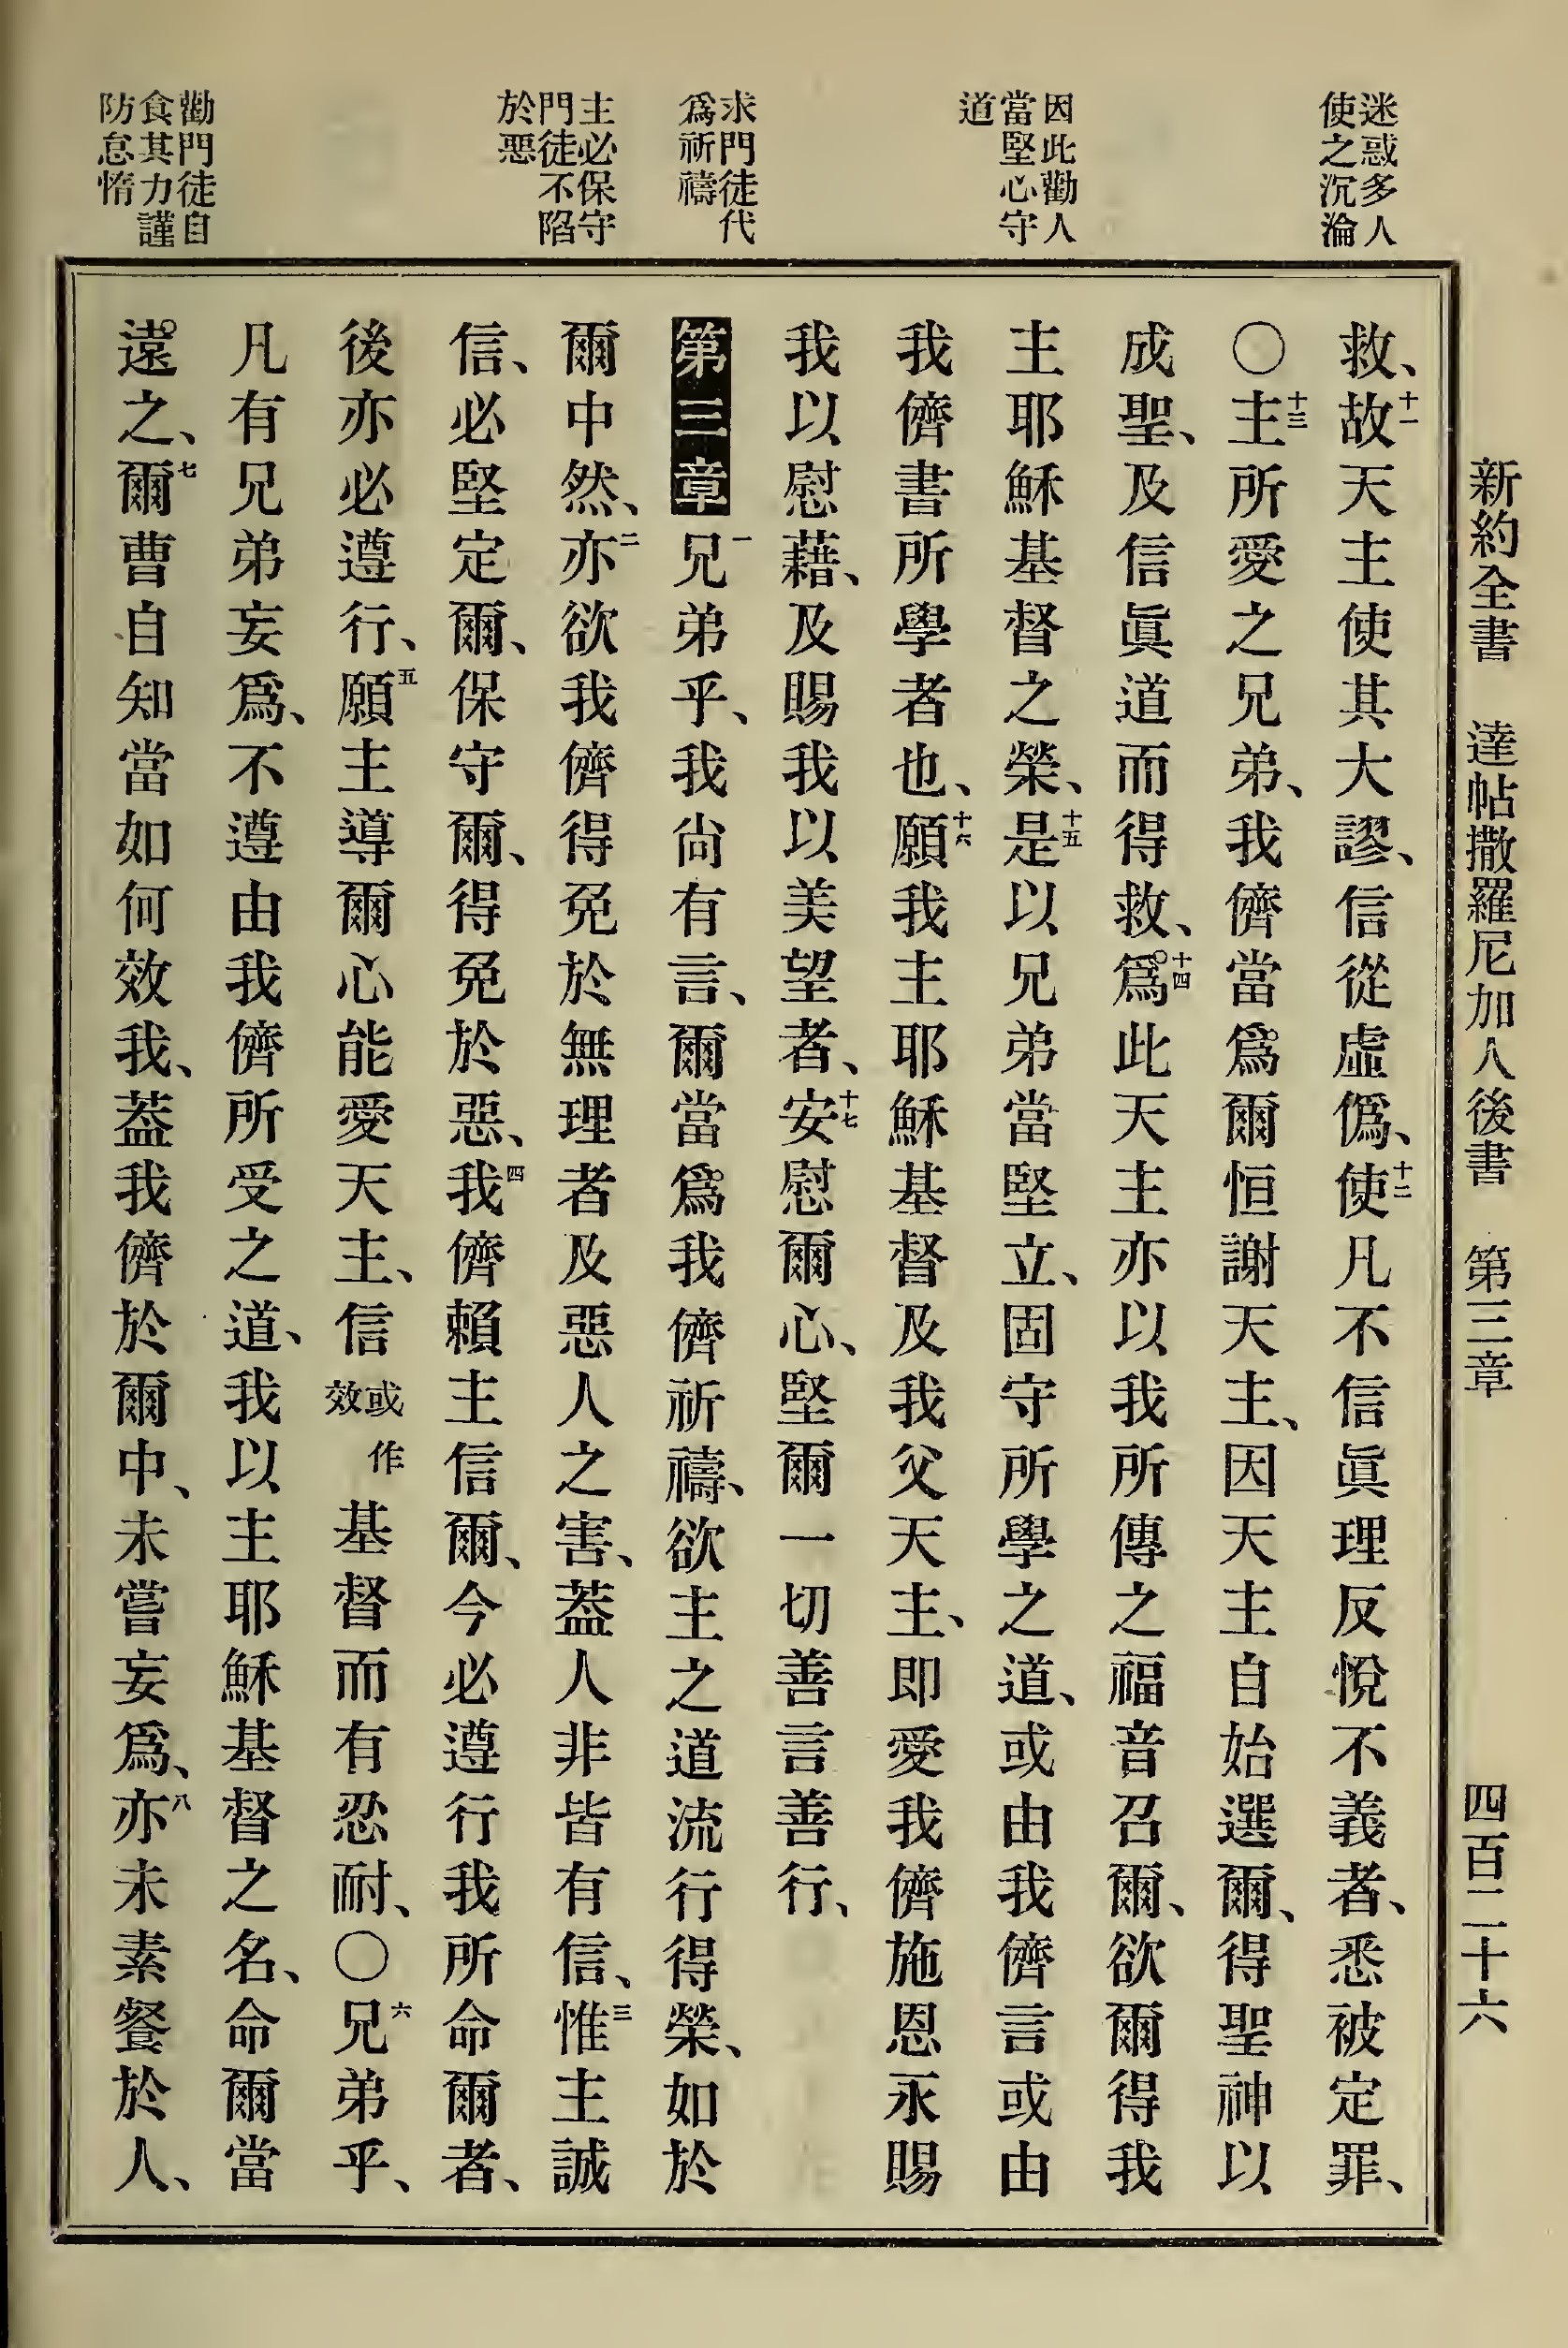 新約全書 達帖撒羅尼加人後書 第三章 四百二十六
迷惑多人
使之沉淪
因此勸人
當堅心守
道
求門徒代
爲祈禱
主必保守
門徒不陷
於惡
勸門徒自
食其力謹
防怠惰
救、十一故天主使其大謬、信從虛僞、十二使凡不信眞理反悅不義者、悉被定罪、
〇十三主所愛之兄弟、我儕當爲爾恒謝天主、因天主自始選爾、得聖神以
成聖、及信眞道而得救、十四爲此天主亦以我所傳之福音召爾、欲爾得我
主耶穌基督之榮、十五是以兄弟當堅立、固守所學之道、或由我儕言或由
我儕書所學者也、十六願我主耶穌基督及我父天主、即愛我儕施恩永賜
我以慰藉、及賜我以美望者、十七安慰爾心、堅爾一切善言善行、
第三章 一兄弟乎、我尙有言、爾當爲我儕祈禱、欲主之道流行得榮、如於
爾中然、二亦欲我儕得免於無理者及惡人之害、蓋人非皆有信、三惟主誠
信、必堅定爾、保守爾、得免於惡、四我儕賴主信爾、今必遵行我所命爾者、
後亦必遵行、五願主導爾心能愛天主、信或作效基督而有忍耐、〇六兄弟乎、
凡有兄弟妄爲、不遵由我儕所受之道、我以主耶穌基督之名、命爾當
遠之、七爾曹自知當如何效我、蓋我儕於爾中、未嘗妄爲、八亦未素餐於人、